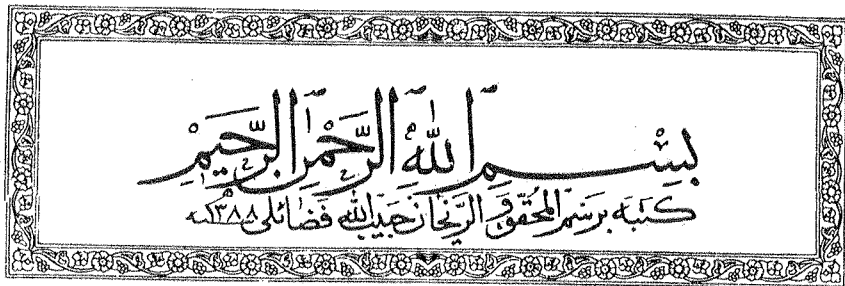 بِسْمِ اللهِ الرَّحْمٰنِ الرَّحِيْمِ
كتبه برسم المحقق و الريحان حبيب الله فضائلى ١٣٨٨ﻫ